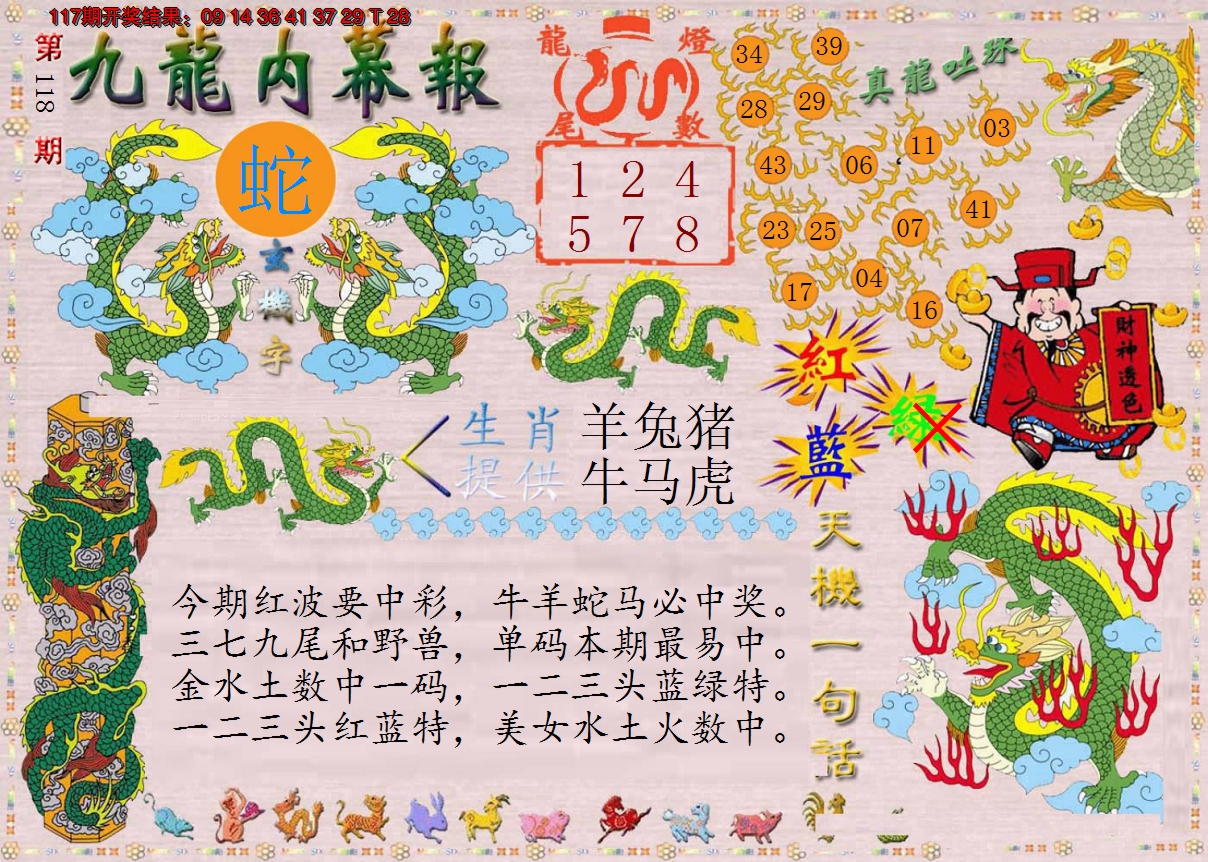 117期开奖结果：09 14 36 41 37 29 T 28
第118期
九龍内幕報
蛇
玄機字
龍燈
尾數
1 2 4
5 7 8
真龍吐珠
34
39
28
29
43
06
11
03
23
25
07
41
17
04
16
財神透色
紅
綠
藍
生肖
提供
羊兔猪
牛马虎
天機一句话
今期红波要中彩，牛羊蛇马必中奖。
三七九尾和野兽，单码本期最易中。
金水土数中一码，一二三头蓝绿特。
一二三头红蓝特，美女水土火数中。